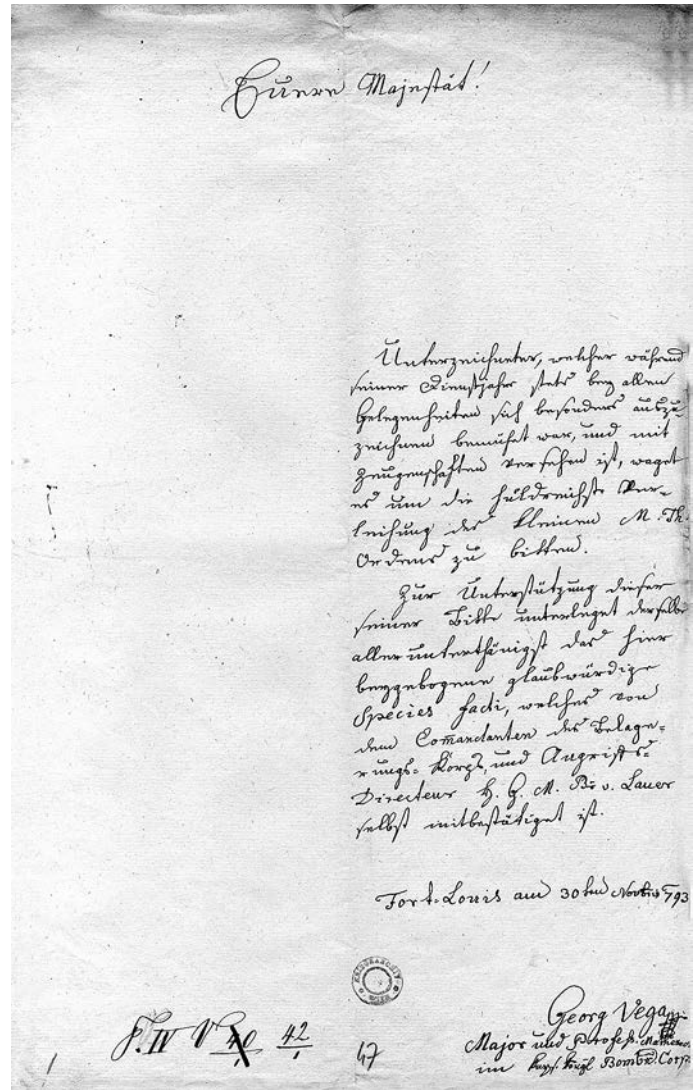 Euere Majestät!
Unterzeichneter, welcher während
seiner Dienstjahre stets bey allen
Gelegenheiten sich besonders auszu-
zeichnen bemühet war, und mit
Zeugenschaften versehen ist, waget
es um die huldreichste Ver-
leihung des kleinen M. Th.
Ordens zu bitten.
Zur Unterstützung dieser
seiner Bitte unterleget derselbe
allerunterthänigst das hier
beygebogene glaubwürdige
Species facti, welches von
dem Comandanten des Belage-
rungs-Korps, und Angriffs-
Directeur H. G. M. Br. v. Lauer
selbst mitbestätiget ist.
Fort-Louis am 30ten Novbr 793
KRIEGSARCHIV WIEN
Georg Vega
Major und Profess. Mathem.
im kays. königl Bombd. Corps
F. IV V 40 42
47